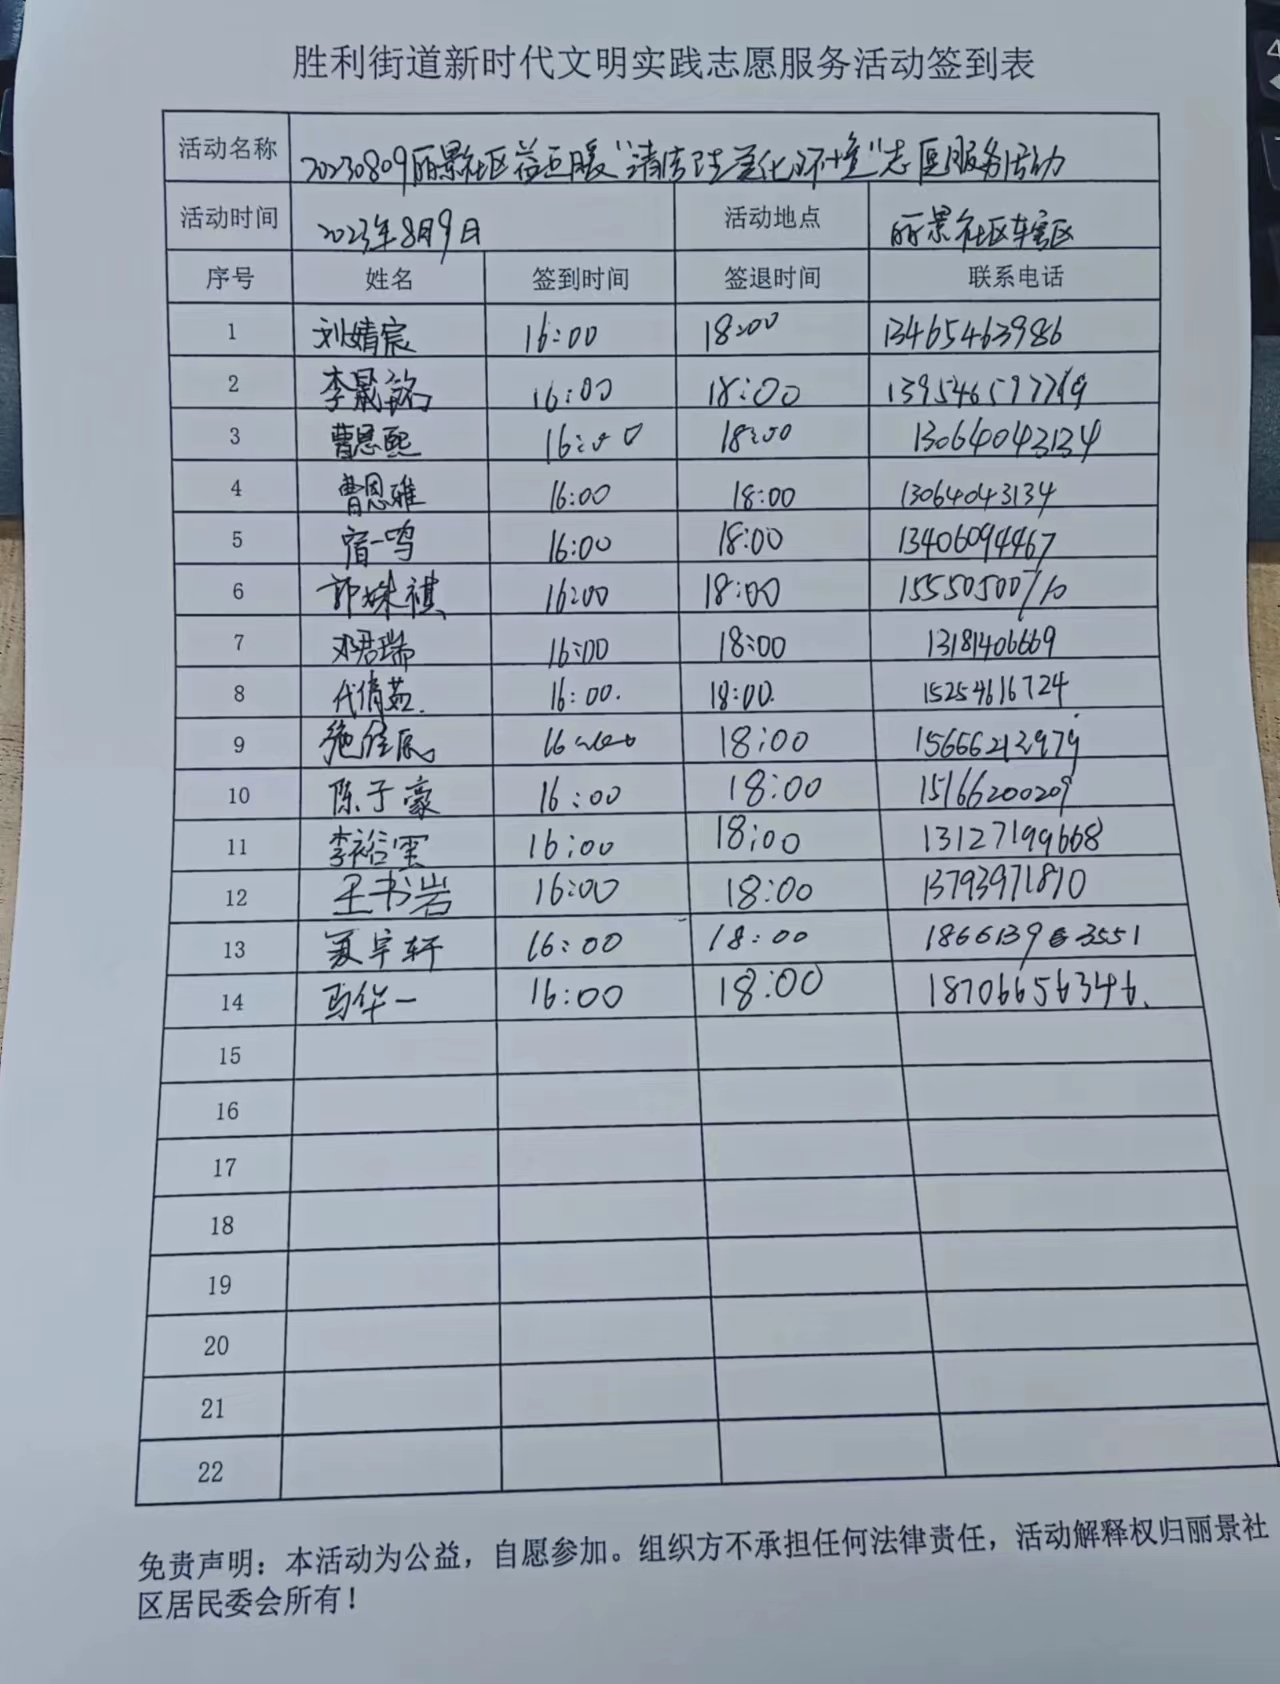 胜利街道新时代文明实践志愿服务活动签到表
活动名称 20230809丽景社区益五暖“清洁 美化环境”志愿服务活动
活动时间 2023年8月9日 活动地点 丽景社区辖区
序号 姓名 签到时间 签退时间 联系电话
1 刘婧宸 16:00 18:00 13465463986
2 李晟铭 16:00 18:00
3 曹恩熙 16:00 18:00 13064043134
4 曹恩雅 16:00 18:00 13064043134
5 宿一鸣 16:00 18:00 13406094467
6 郭姝祺 16:00 18:00 15550500710
7 邓君瑞 16:00 18:00 13181406669
8 代倩茹. 16:00. 18:00. 15254616724
9 16:00 18:00 15666212979
10 陈于豪 16:00 18:00 15166200209
11 李裕 16:00 18:00 13127199668
12 王书岩 16:00 18:00 13793971810
13 夏宇轩 16:00 18:00 18661393551
14 马华一 16:00 18:00 18706656346.
15
16
17
18
19
20
21
22
免责声明：本活动为公益，自愿参加。组织方不承担任何法律责任，活动解释权归丽景社
区居民委会所有！